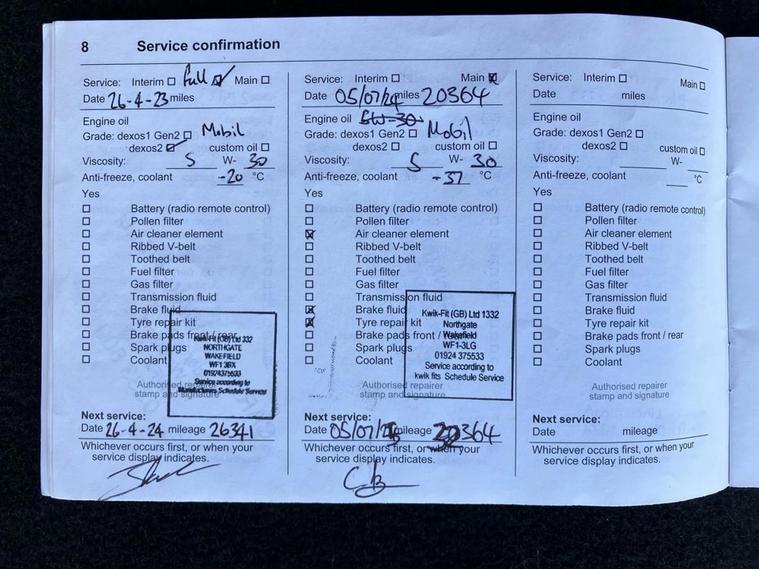 8 Service confirmation
Service: Interim ☐ full ☑ Main ☐
Date 26-4-23 miles
Engine oil
Grade: dexos1 Gen2 ☐ Mobil
dexos2 ☑ custom oil ☐
Viscosity: 5 W- 30
Anti-freeze, coolant -20 °C
Yes
☐ Battery (radio remote control)
☐ Pollen filter
☐ Air cleaner element
☐ Ribbed V-belt
☐ Toothed belt
☐ Fuel filter
☐ Gas filter
☐ Transmission fluid
☐ Brake fluid
☐ Tyre repair kit
☐ Brake pads front / rear
☐ Spark plugs
☐ Coolant
Kwik-Fit (GB) Ltd 332
NORTHGATE
WAKEFIELD
WF1 3BX
01924375533
Service according to
Manufacturers Schedule Service
Authorised repairer
stamp and signature
Next service:
Date 26-4-24 mileage 26341
Whichever occurs first, or when your
service display indicates.
Service: Interim ☐ Main ☒
Date 05/07/24 miles 20364
Engine oil 5W-30
Grade: dexos1 Gen2 ☐ Mobil
dexos2 ☐ custom oil ☐
Viscosity: 5 W- 30
Anti-freeze, coolant -37 °C
Yes
☐ Battery (radio remote control)
☐ Pollen filter
☒ Air cleaner element
☐ Ribbed V-belt
☐ Toothed belt
☐ Fuel filter
☐ Gas filter
☐ Transmission fluid
☒ Brake fluid
☒ Tyre repair kit
☐ Brake pads front /
☐ Spark plugs
☐ Coolant
Kwik-Fit (GB) Ltd 1332
Northgate
Wakefield
WF1-3LG
01924 375533
Service according to
kwik fits Schedule Service
Authorised repairer
stamp and signature
Next service:
Date 05/07/25 mileage 364
Whichever occurs first, or when your
service display indicates.
Service: Interim ☐ Main ☐
Date miles
Engine oil
Grade: dexos1 Gen2 ☐
dexos2 ☐ custom oil ☐
Viscosity: W-
Anti-freeze, coolant °C
Yes
☐ Battery (radio remote control)
☐ Pollen filter
☐ Air cleaner element
☐ Ribbed V-belt
☐ Toothed belt
☐ Fuel filter
☐ Gas filter
☐ Transmission fluid
☐ Brake fluid
☐ Tyre repair kit
☐ Brake pads front / rear
☐ Spark plugs
☐ Coolant
Authorised repairer
stamp and signature
Next service:
Date mileage
Whichever occurs first, or when your
service display indicates.